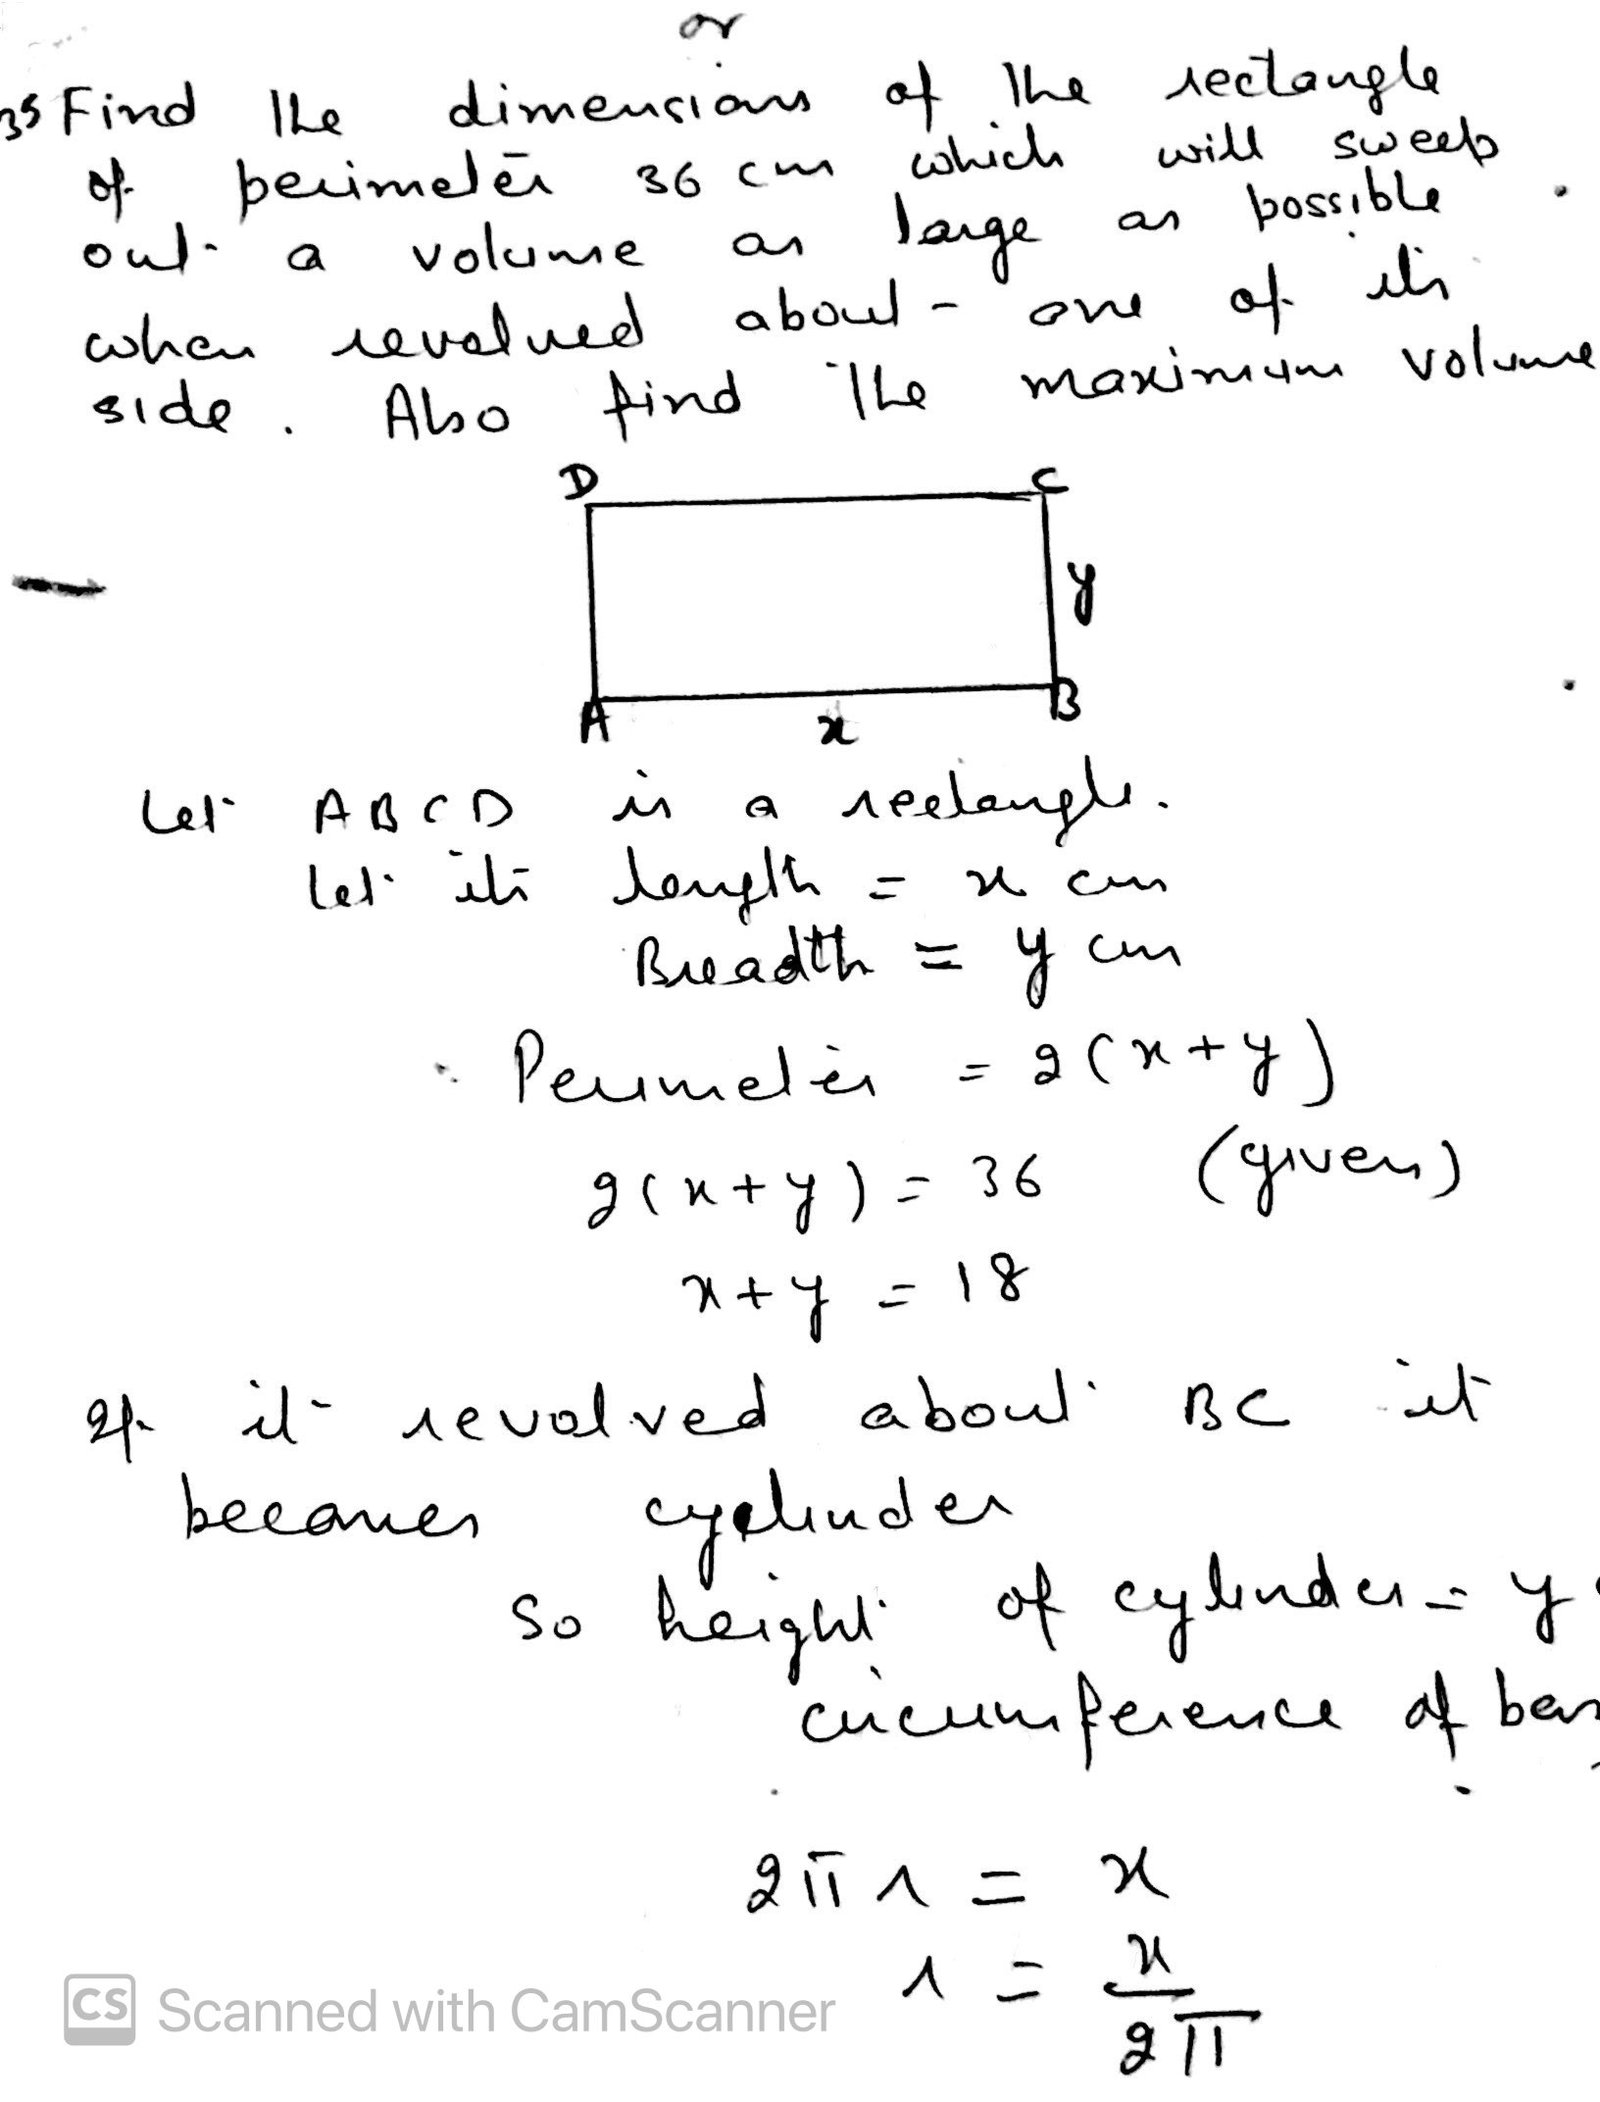 or
35 Find the dimensions of the rectangle
of perimeter 36 cm which will sweep
out a volume as large as possible
when revolved about one of its
side. Also find the maximum volume
D C
y
A x B
Let ABCD is a rectangle.
Let its length = x cm
Breadth = y cm
∴ Perimeter = 2(x+y)
2(x+y) = 36 (given)
x+y = 18
If it revolved about BC it
becomes cylinder
So height of cylinder = y
circumference of
2π r = x
r = x/2π
CS Scanned with CamScanner